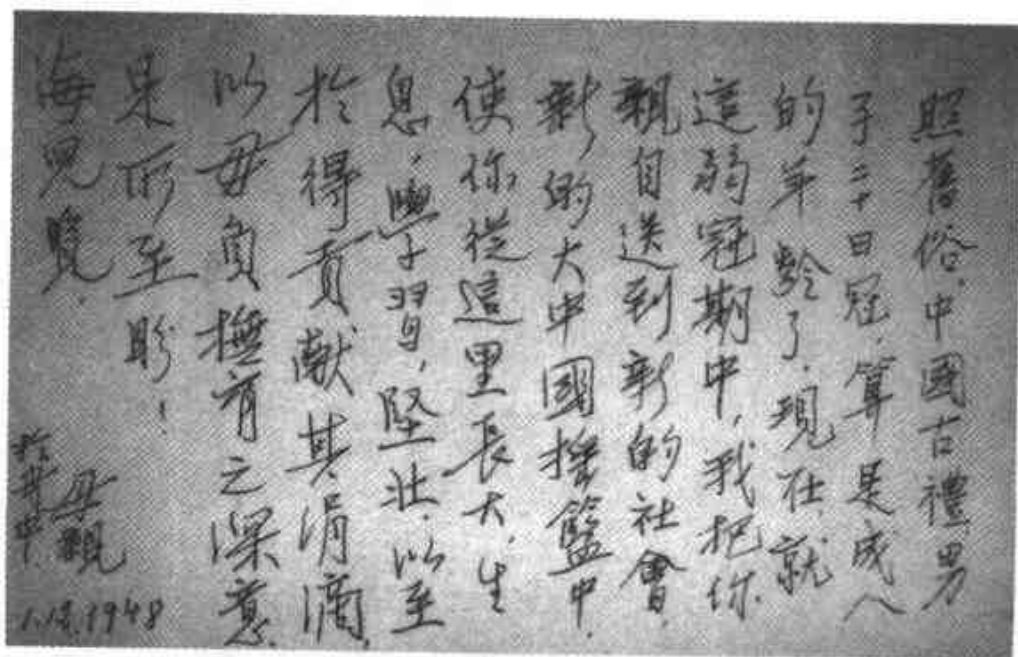 照舊俗，中國古禮，男
子二十曰冠，算是成人
的年齡了．現在，就
這弱冠期中，我把你
親自送到新的社會，
新的大中國搖籃中，
使你從這里長大，生
息，學習，堅壯，以至
於得貢献其涓滴，
以毋負撫育之深意．
是所至盼！
海児覽．
母親
於華中
1948